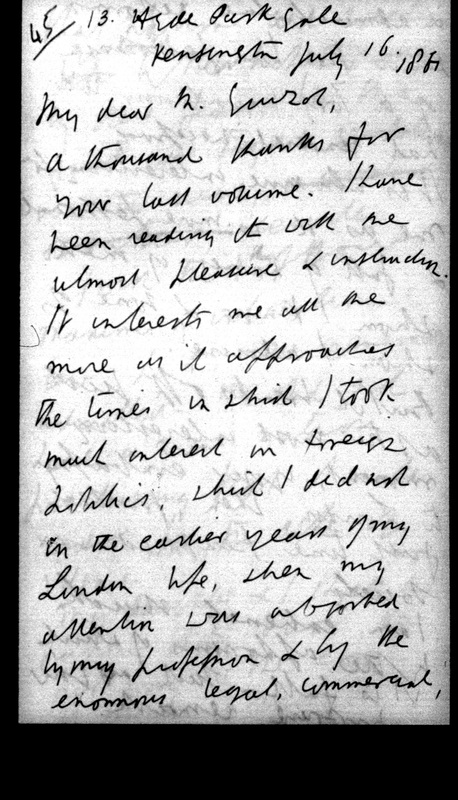 45/ 13. Hyde Park Gate
Kensington July 16. 1861
My dear M. Guizot,
a thousand thanks for
your last volume. I have
been reading it with the
utmost pleasure & instruction.
It interests me all the
more as it approaches
the times in which I took
much interest in foreign
politics. which I did not
in the earlier years of my
London life, when my
attention was absorbed
by my profession & by the
enormous legal, commercial,